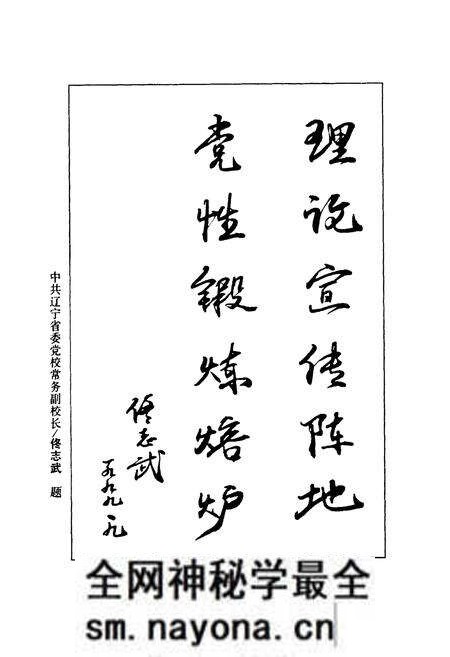 理论宣传阵地
党性锻炼熔炉
佟志武
一九九九一九
中共辽宁省委党校常务副校长/佟志武 题
全网神秘学最全
sm.nayona.cn